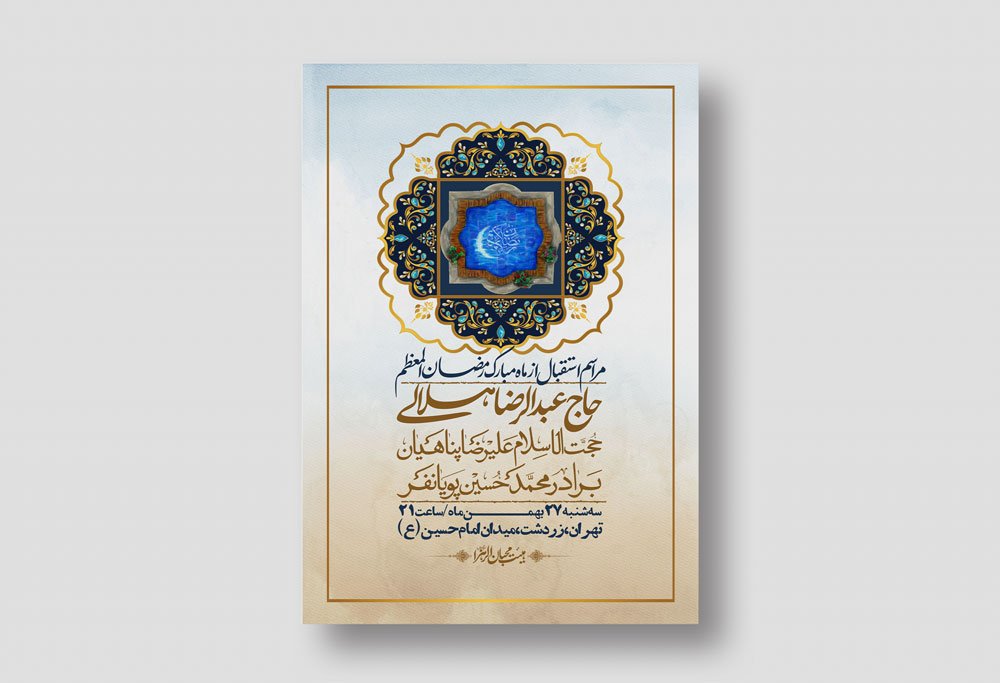 رمضان کریم
مراسم استقبال از ماه مبارک رمضان المعظم
حاج عبدالرضا هلالی
حجت الاسلام علیرضا پناهیان
برادر محمد حسین پویانفر
سه شنبه ۲۷ بهمن ماه/ساعت ۲۱
تهران، زردشت، میدان امام حسین (ع)
هیئت محبان الزهرا